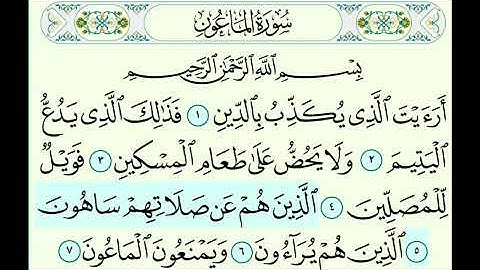 سُورَةُ المَاعُونِ
بِسْمِ اللَّهِ الرَّحْمَٰنِ الرَّحِيمِ
أَرَءَيْتَ ٱلَّذِى يُكَذِّبُ بِٱلدِّينِ ١ فَذَٰلِكَ ٱلَّذِى يَدُعُّ
ٱلْيَتِيمَ ٢ وَلَا يَحُضُّ عَلَىٰ طَعَامِ ٱلْمِسْكِينِ ٣ فَوَيْلٌ
لِّلْمُصَلِّينَ ٤ ٱلَّذِينَ هُمْ عَن صَلَاتِهِمْ سَاهُونَ
٥ ٱلَّذِينَ هُمْ يُرَآءُونَ ٦ وَيَمْنَعُونَ ٱلْمَاعُونَ ٧